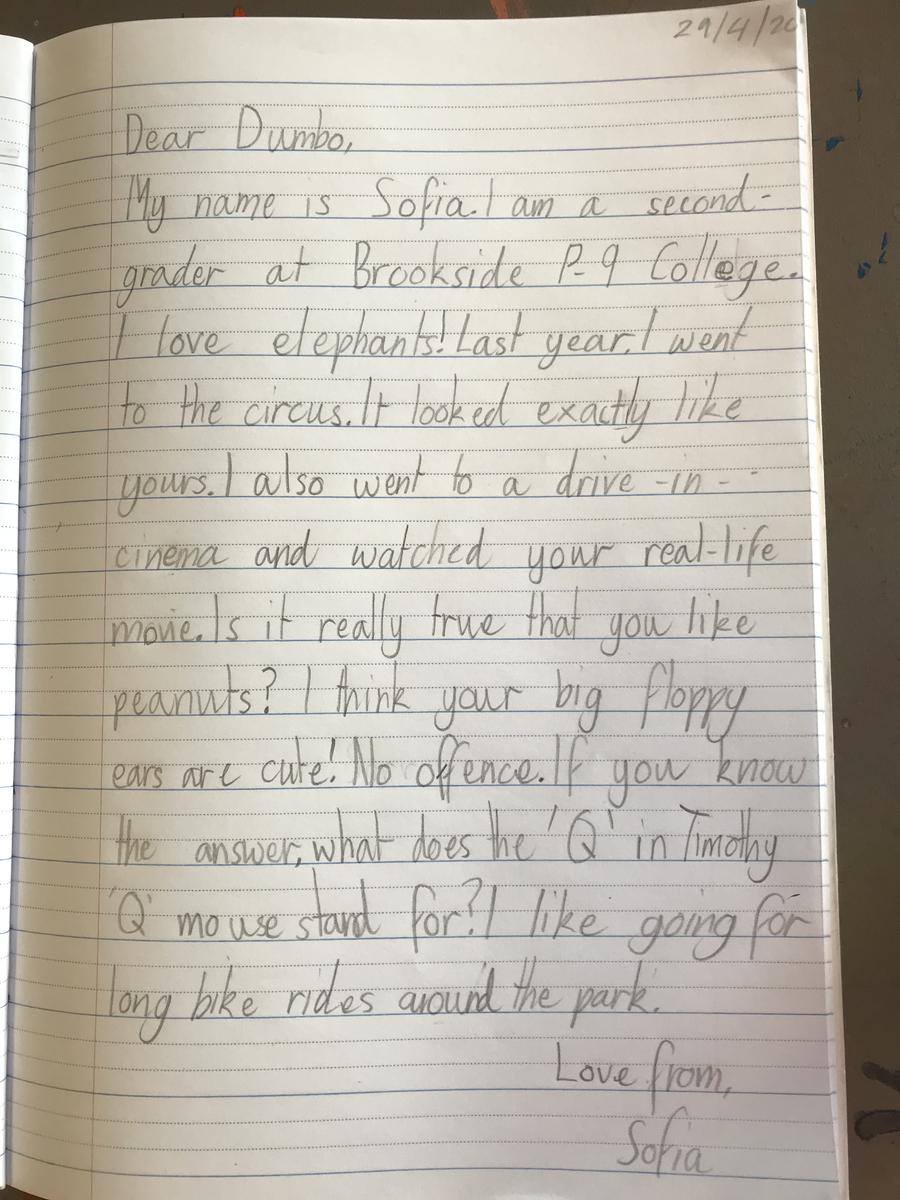 29/4/20
Dear Dumbo,
My name is Sofia. I am a second-
grader at Brookside P-9 College.
I love elephants! Last year. I went
to the circus. It looked exactly like
yours. I also went to a drive-in-
cinema and watched your real-life
movie. Is it really true that you like
peanuts? I think your big floppy
ears are cute! No offence. If you know
the answer, what does the 'Q' in Timothy
'Q' mouse stand for? I like going for
long bike rides around the park.
Love from,
Sofia